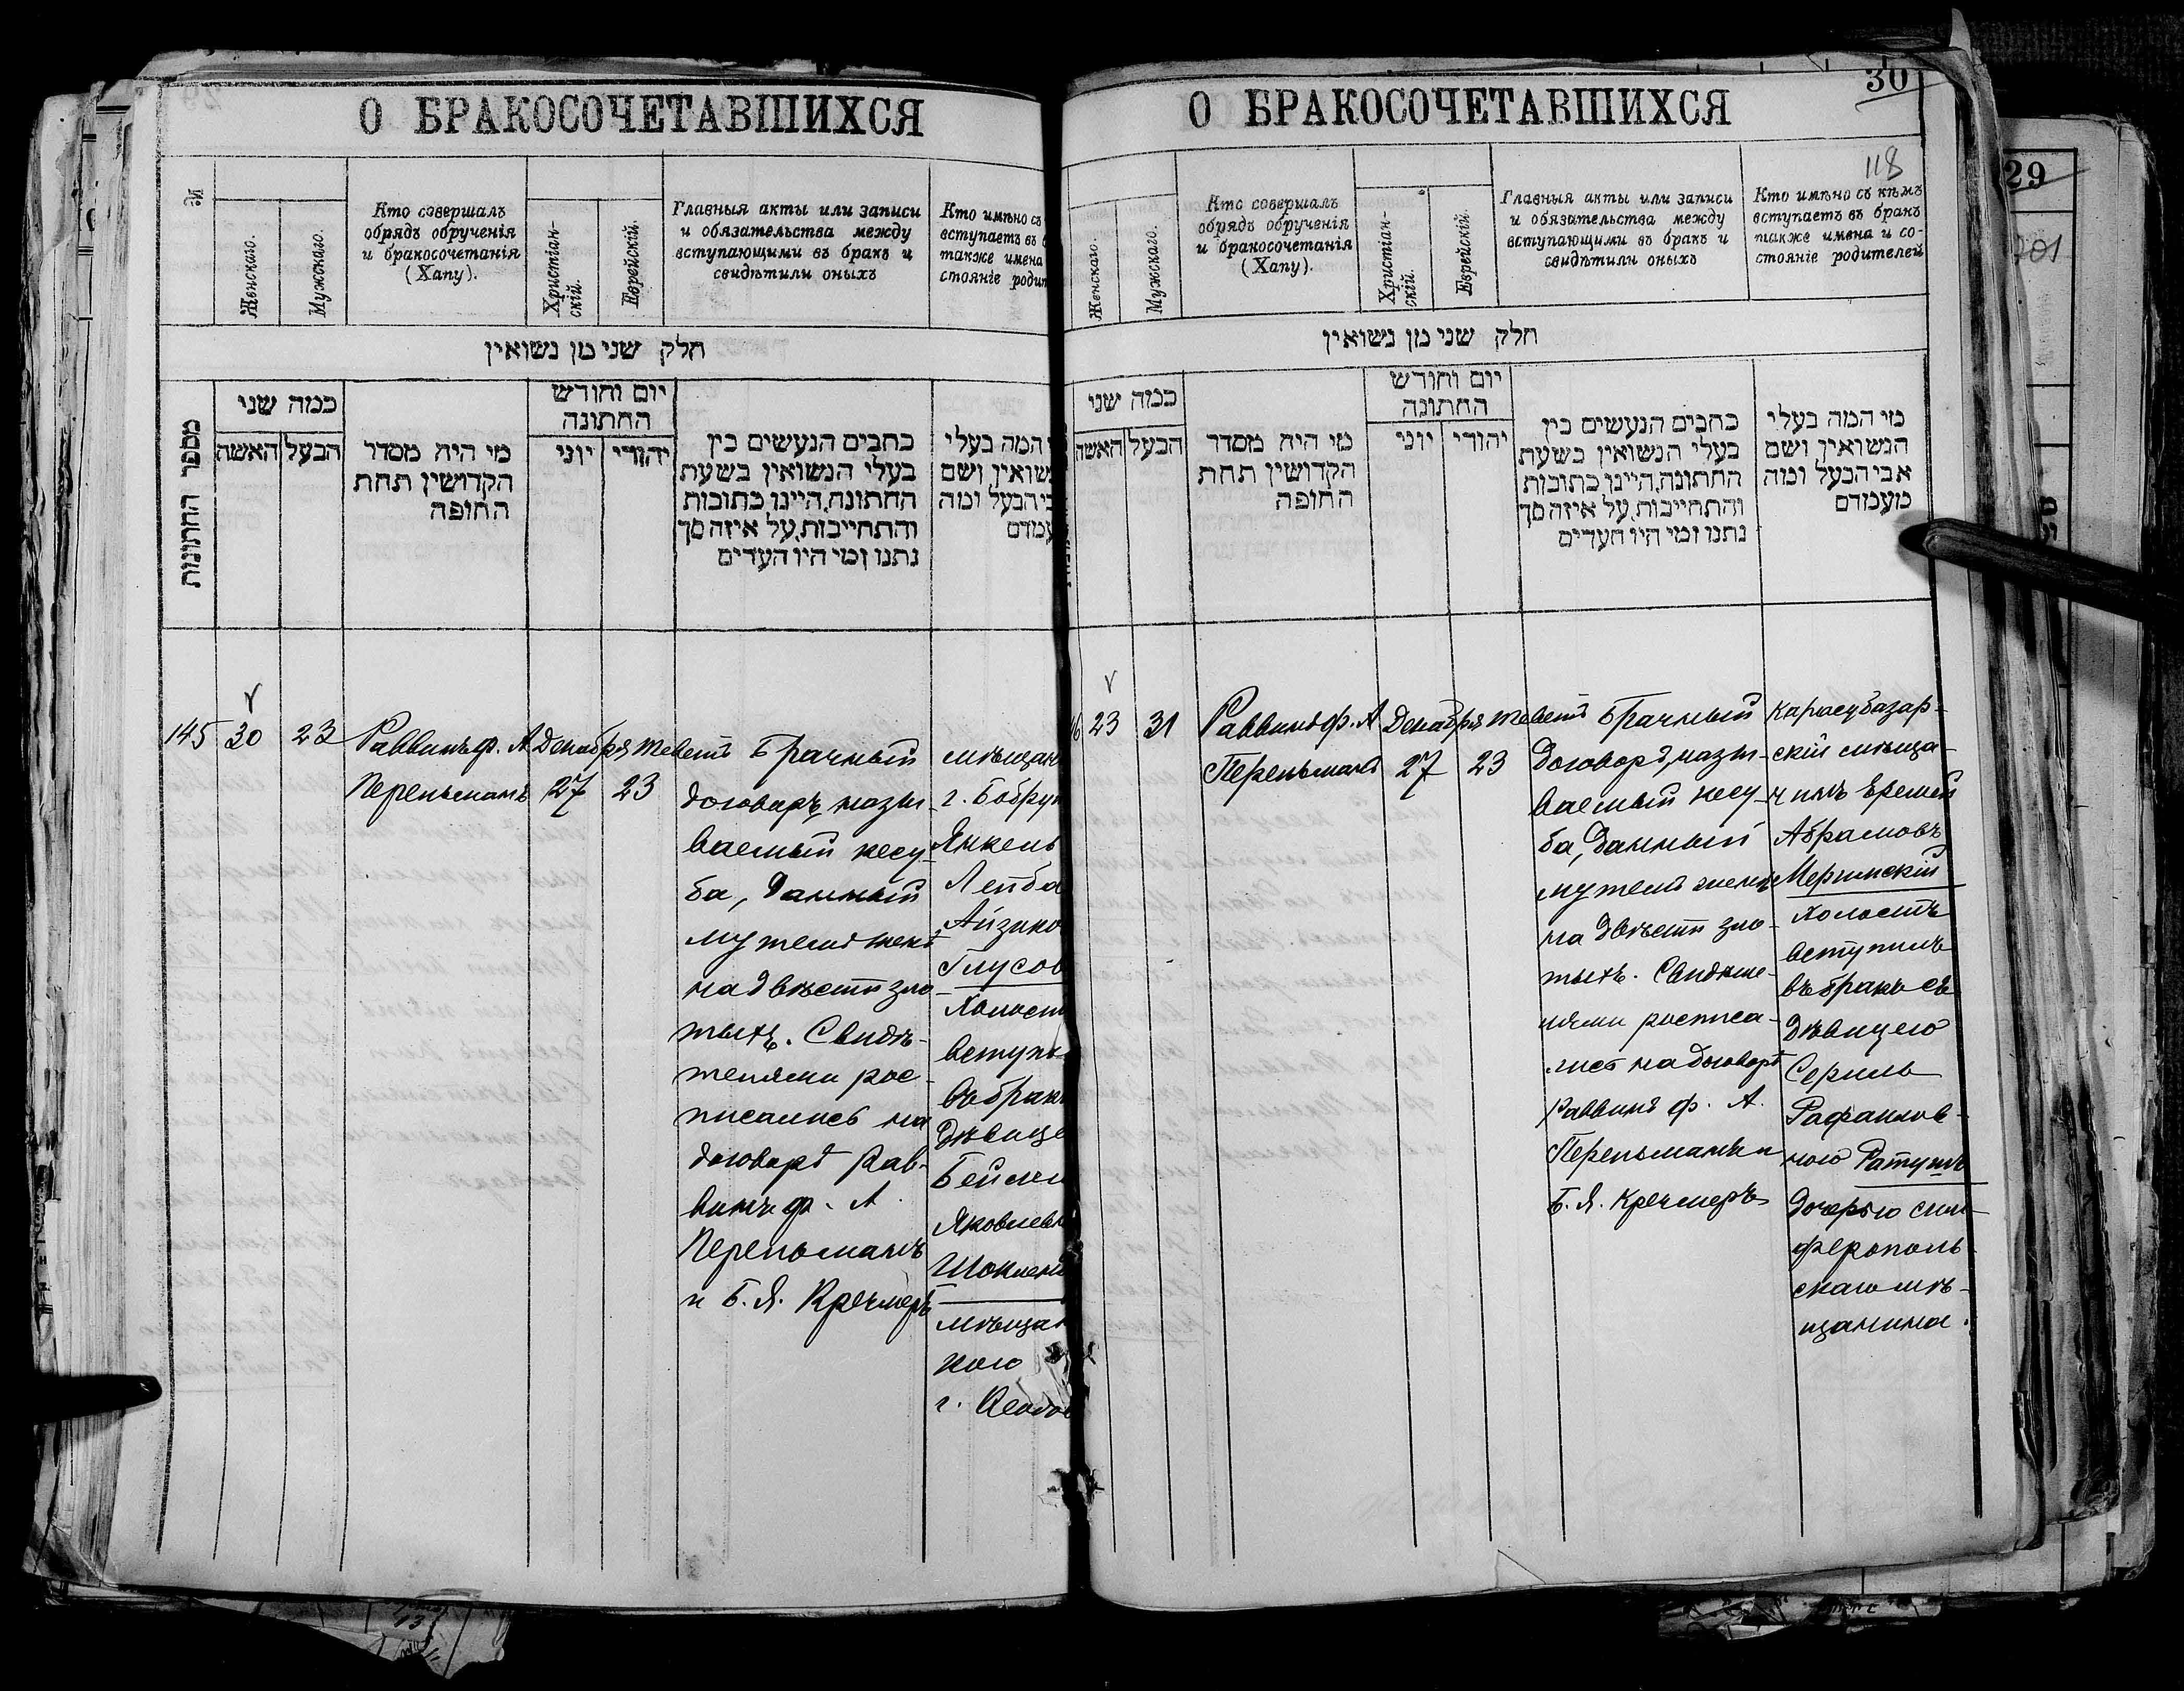 О БРАКОСОЧЕТАВШИХСЯ
№
Женскаго.
Мужскаго.
Кто совершалъ
обрядъ обрученія
и бракосочетанія
(Хапу).
Христіан-
скій.
Еврейскій.
Главныя акты или записи
и обязательства между
вступающими въ бракъ и
свидѣтили оныхъ
Кто имѣно съ
вступаетъ въ
также имена
стояніе родит
חלק שני מן נשואין
מספר החתונות
כמה שני
האשה
הבעל
מי היה מסדר
הקדושין תחת
החופה
יום וחודש
החתונה
יוני
יהודי
כתבים הנעשים בין
בעלי הנשואין בשעת
החתונה, היינו כתובות
והתחייבות, על איזה סך
נתנו ומי היו העדים
המה בעלי
שואין ושם
בי הבעל ומה
עמדם
145
30
23
Раввинъ ф. А
Перельманъ
Декабря
27
Теветъ
23
Брачный
договоръ, назы-
ваемый кесу-
ба, данный
мужемъ женѣ
на двѣсти зло-
тыхъ. Свидѣ-
телями рос-
писались на
договорѣ Рав-
винъ ф. А.
Перельманъ
и Б. Я. Кречмеръ
мѣщан
г. Бобруй
Янкель
Лейба
Айзико
Глусов
Холост
вступи
въ бракъ
дѣвице
Бейлей
Яковлев
Шоклен
мѣщан
кого
г. Ѳеодо
О БРАКОСОЧЕТАВШИХСЯ
30
118
Женскаго.
Мужскаго.
Кто совершалъ
обрядъ обрученія
и бракосочетанія
(Хапу).
Христіан-
скій.
Еврейскій.
Главныя акты или записи
и обязательства между
вступающими въ бракъ и
свидѣтили оныхъ
Кто имѣно съ кѣмъ
вступаетъ въ бракъ
также имена и со-
стояніе родителей
חלק שני מן נשואין
כמה שני
האשה
הבעל
מי היה מסדר
הקדושין תחת
החופה
יום וחודש
החתונה
יוני
יהודי
כתבים הנעשים בין
בעלי הנשואין בשעת
החתונה, היינו כתובות
והתחייבות, על איזה סך
נתנו ומי היו העדים
מי המה בעלי
הנשואין ושם
אבי הבעל ומה
מעמדם
6
23
31
Раввинъ ф. А
Перельманъ
Декабря
27
Теветъ
23
Брачный
договоръ, назы-
ваемый кесу-
ба, данный
мужемъ женѣ
на двѣсти зло-
тыхъ. Свидѣте-
лями росписа-
лись на договорѣ
Раввинъ ф. А.
Перельманъ и
Б. Я. Кречмеръ
Карасубазар-
скій мѣща-
нинъ Еремей
Абрамовъ
Меримскій
холостъ
вступилъ
въ бракъ съ
дѣвицею
Серилъ
Рафаилов-
ною Ратушъ
дочерью сим-
ферополь-
скаго мѣ-
щанина.
29
201